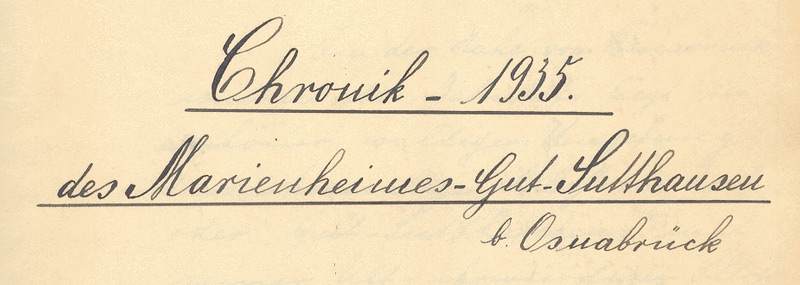 Chronik - 1935.
des Marienheimes-Gut-Sutthausen
b. Osnabrück